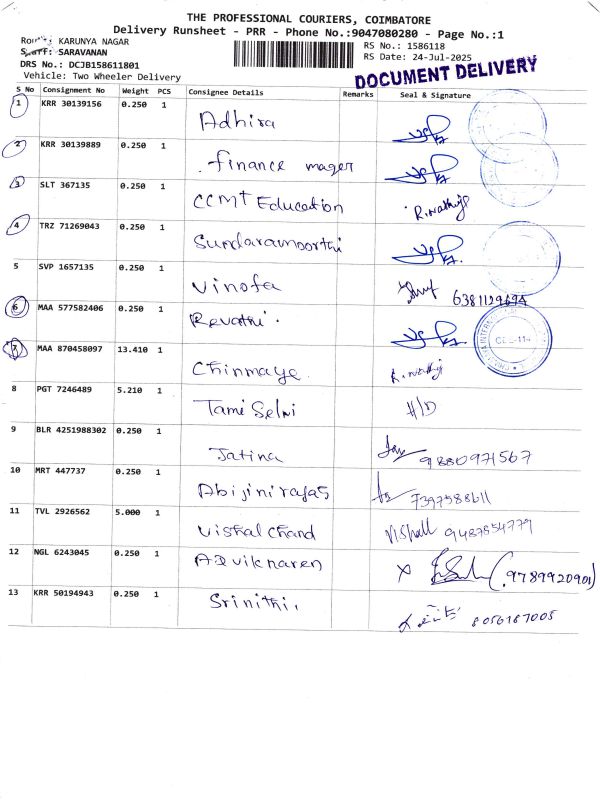 THE PROFESSIONAL COURIERS, COIMBATORE
Delivery Runsheet - PRR - Phone No.:9047080280 - Page No.:1
KARUNYA NAGAR RS No.: 1586118
SARAVANAN RS Date: 24-Jul-2025
DRS No.: DCJB158611801
Vehicle: Two Wheeler Delivery DOCUMENT DELIVERY
S No Consignment No Weight PCS Consignee Details Remarks Seal & Signature
1 KRR 30139156 0.250 1 Adhira
2 KRR 30139889 0.250 1 finance mager
3 SLT 367135 0.250 1 CCMT Education
4 TRZ 71269043 0.250 1 Sundaramoorthi
5 SVP 1657135 0.250 1 Vinofa
6 MAA 577582406 0.250 1 Revathi
7 MAA 870458097 13.410 1 Chinmaye
8 PGT 7246489 5.210 1 Tami Selni H/D
9 BLR 4251988302 0.250 1 Jatina 9880971567
10 MRT 447737 0.250 1 Abijinirajas 7397588611
11 TVL 2926562 5.000 1 Vishal Chand Vishall 9487854779
12 NGL 6243045 0.250 1 Adviknaren (9789920901)
13 KRR 50194943 0.250 1 Srinithi 8056187005